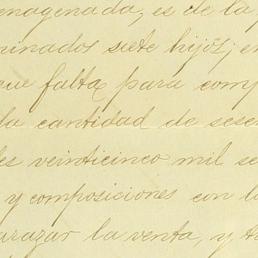 enagenada, es de la
minados siete hijos; en
que falta para comp
la cantidad de sesen
es veinticinco mil se
y composiciones con l
arazar la venta, y t